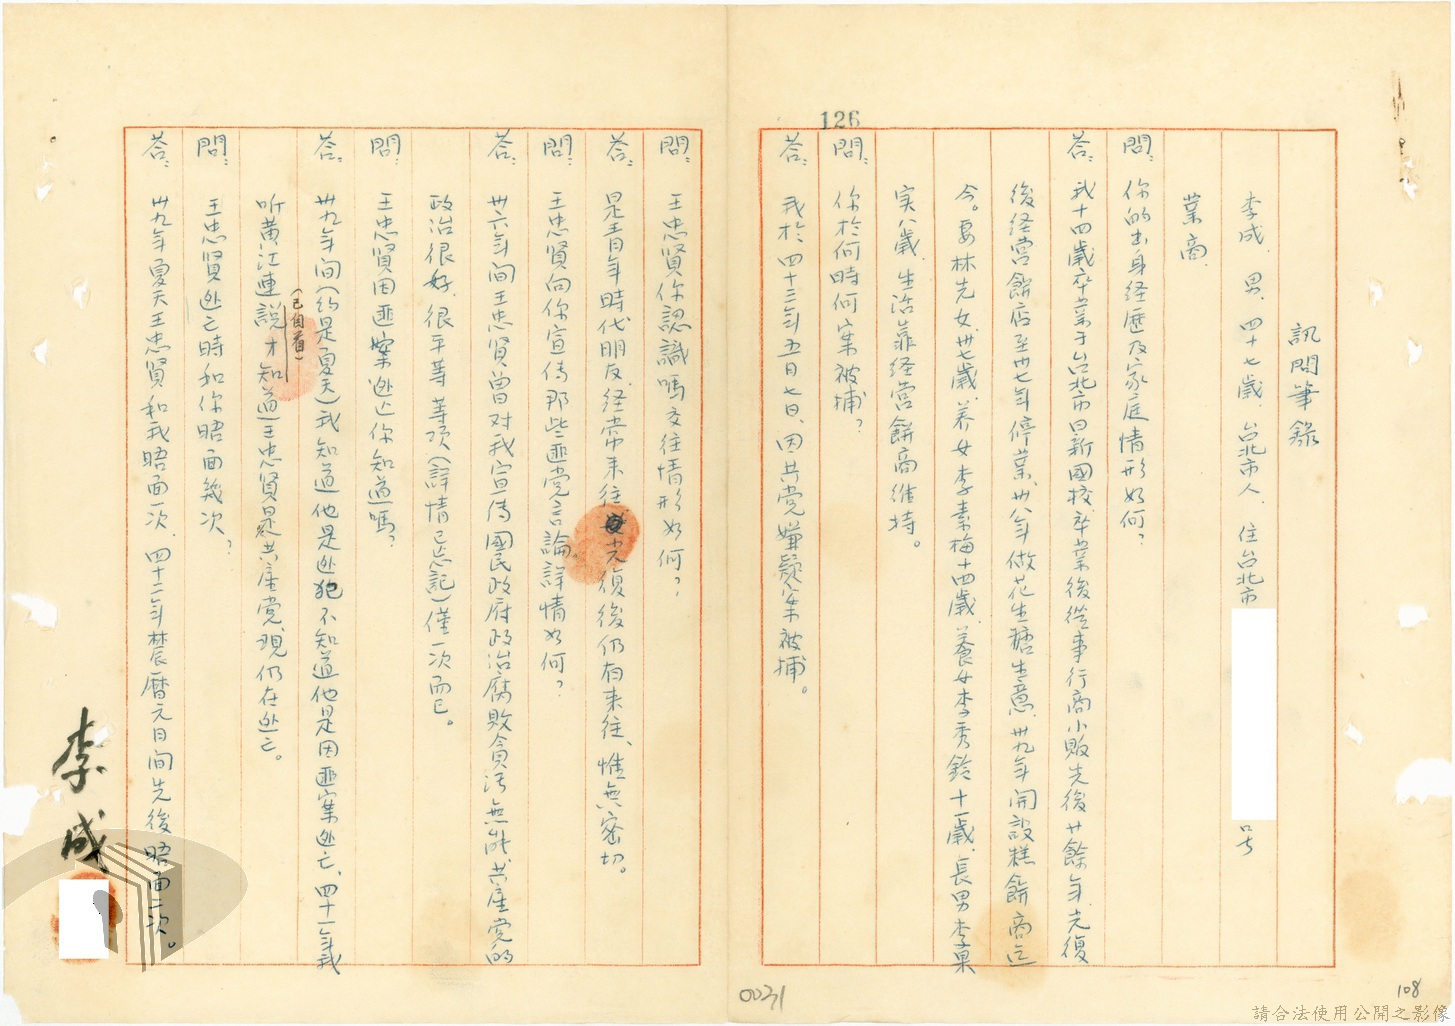 126
訊問筆錄
李成、男、四十七歲、台北市人、住台北市
號
業商、
問：你的出身経歷及家庭情形如何？
答：我十四歲卒業于台北市日新國校、卒業後從事行商小販先後廿餘年、光復
後経営餅店至卅七年停業、卅八年做花生糖生意、卅九年開設糕餅商迄
今。妻林先女、卅七歲、养女李素梅十四歲、養女李秀鈴十一歲、長男李果
实八歲、生活靠経営餅商維持。
問：你於何時何案被捕？
答：我於四十三年五月七日、因共党嫌疑案被捕。
問：王忠賢你認識嗎交往情形如何？
答：是青年時代朋友、経常来往、光復後仍有来往、惟無密切。
問：王忠賢向你宣傳那些匪党言論詳情如何？
答：卅六年间王忠賢曾对我宣傳國民政府政治腐敗貪污無能、共産党的
政治很好、很平等等項（詳情已忘記）僅一次而已。
問：王忠賢因匪案逃亡你知道嗎？
答：卅九年间（約是夏天）我知道他是逃犯不知道他是因匪案逃亡、四十一年我
听黄江連説才知道王忠賢是共産党、現仍在逃亡。
（已自首）
問：王忠賢逃亡時和你晤面幾次？
答：卅九年夏天王忠賢和我晤面一次、四十二年農曆元月间先後晤面二次。
李成
0031
108
請合法使用公開之影像